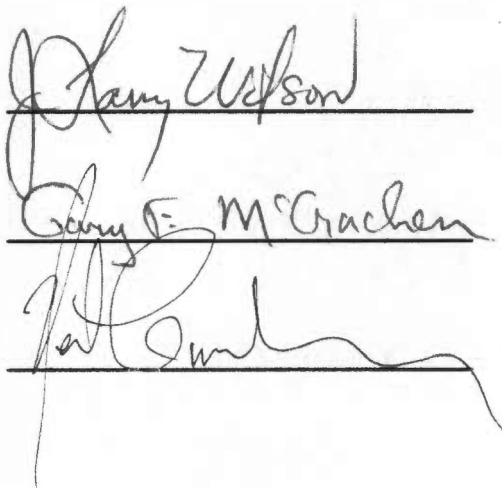 J Larry Wilson
Gary F. McCracken
Neil